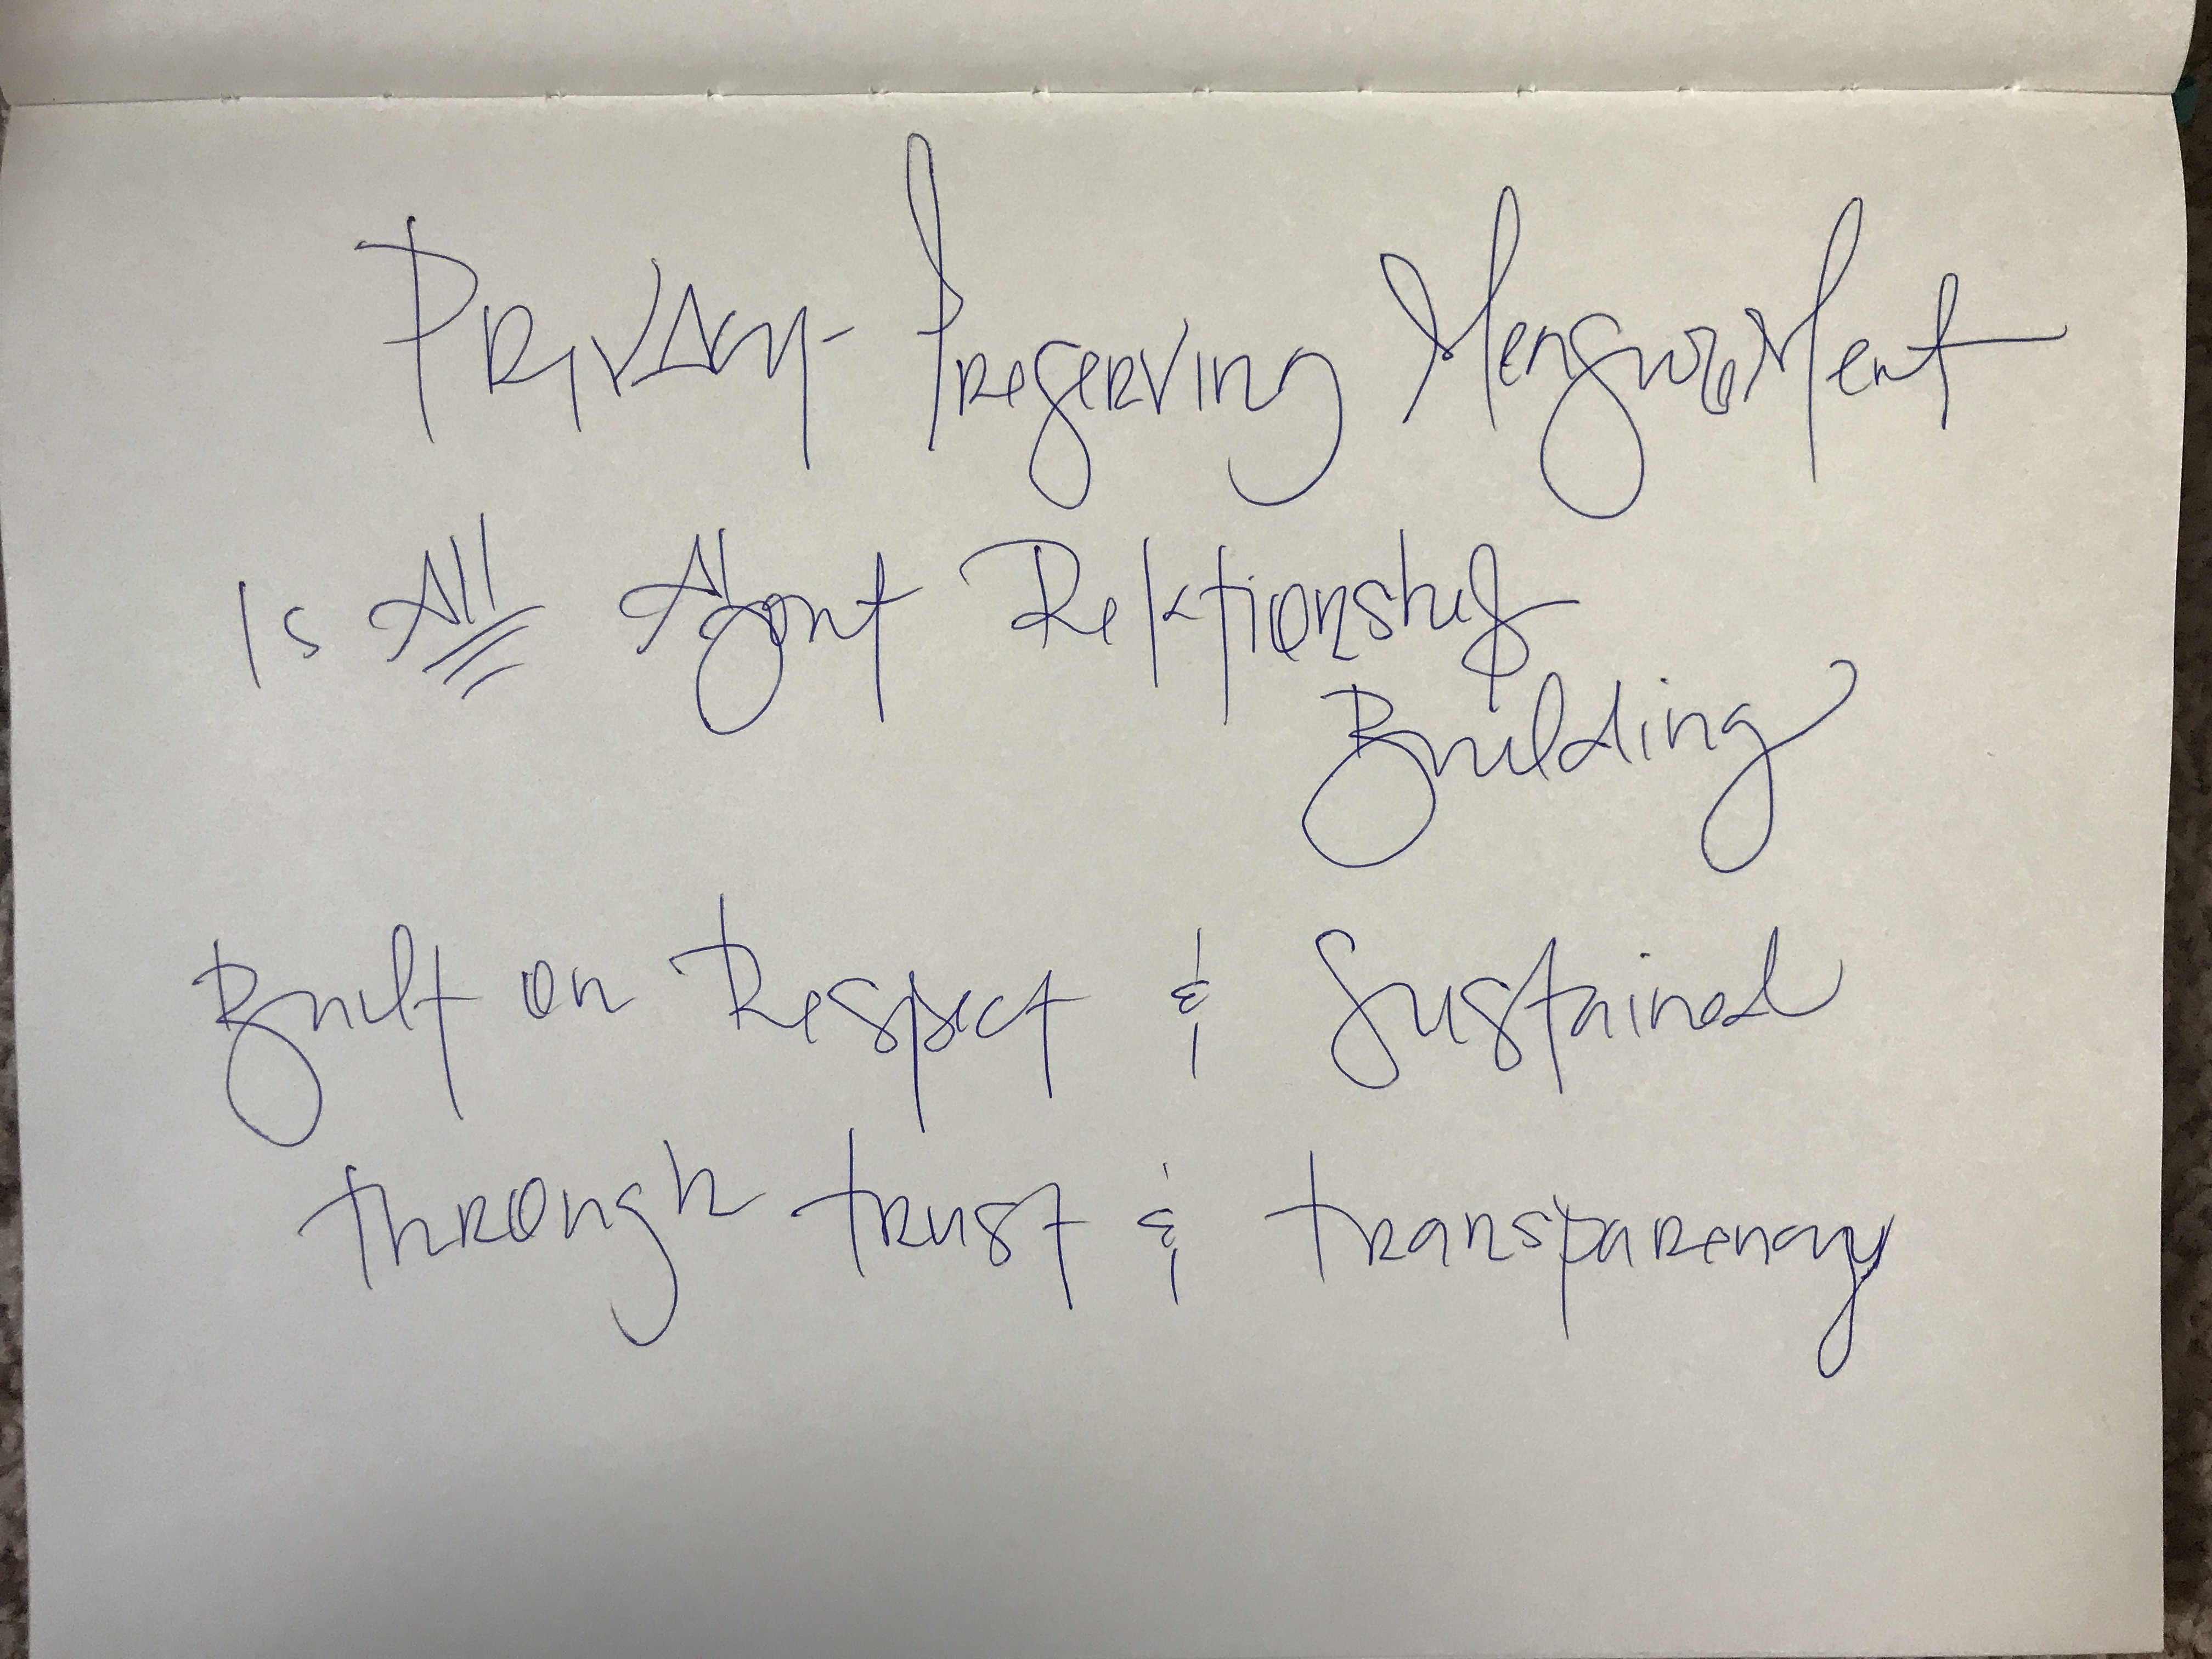 Privacy-Preserving Measurement
Is All About Relationship
Building
Built on Respect & Sustained
through trust & transparency